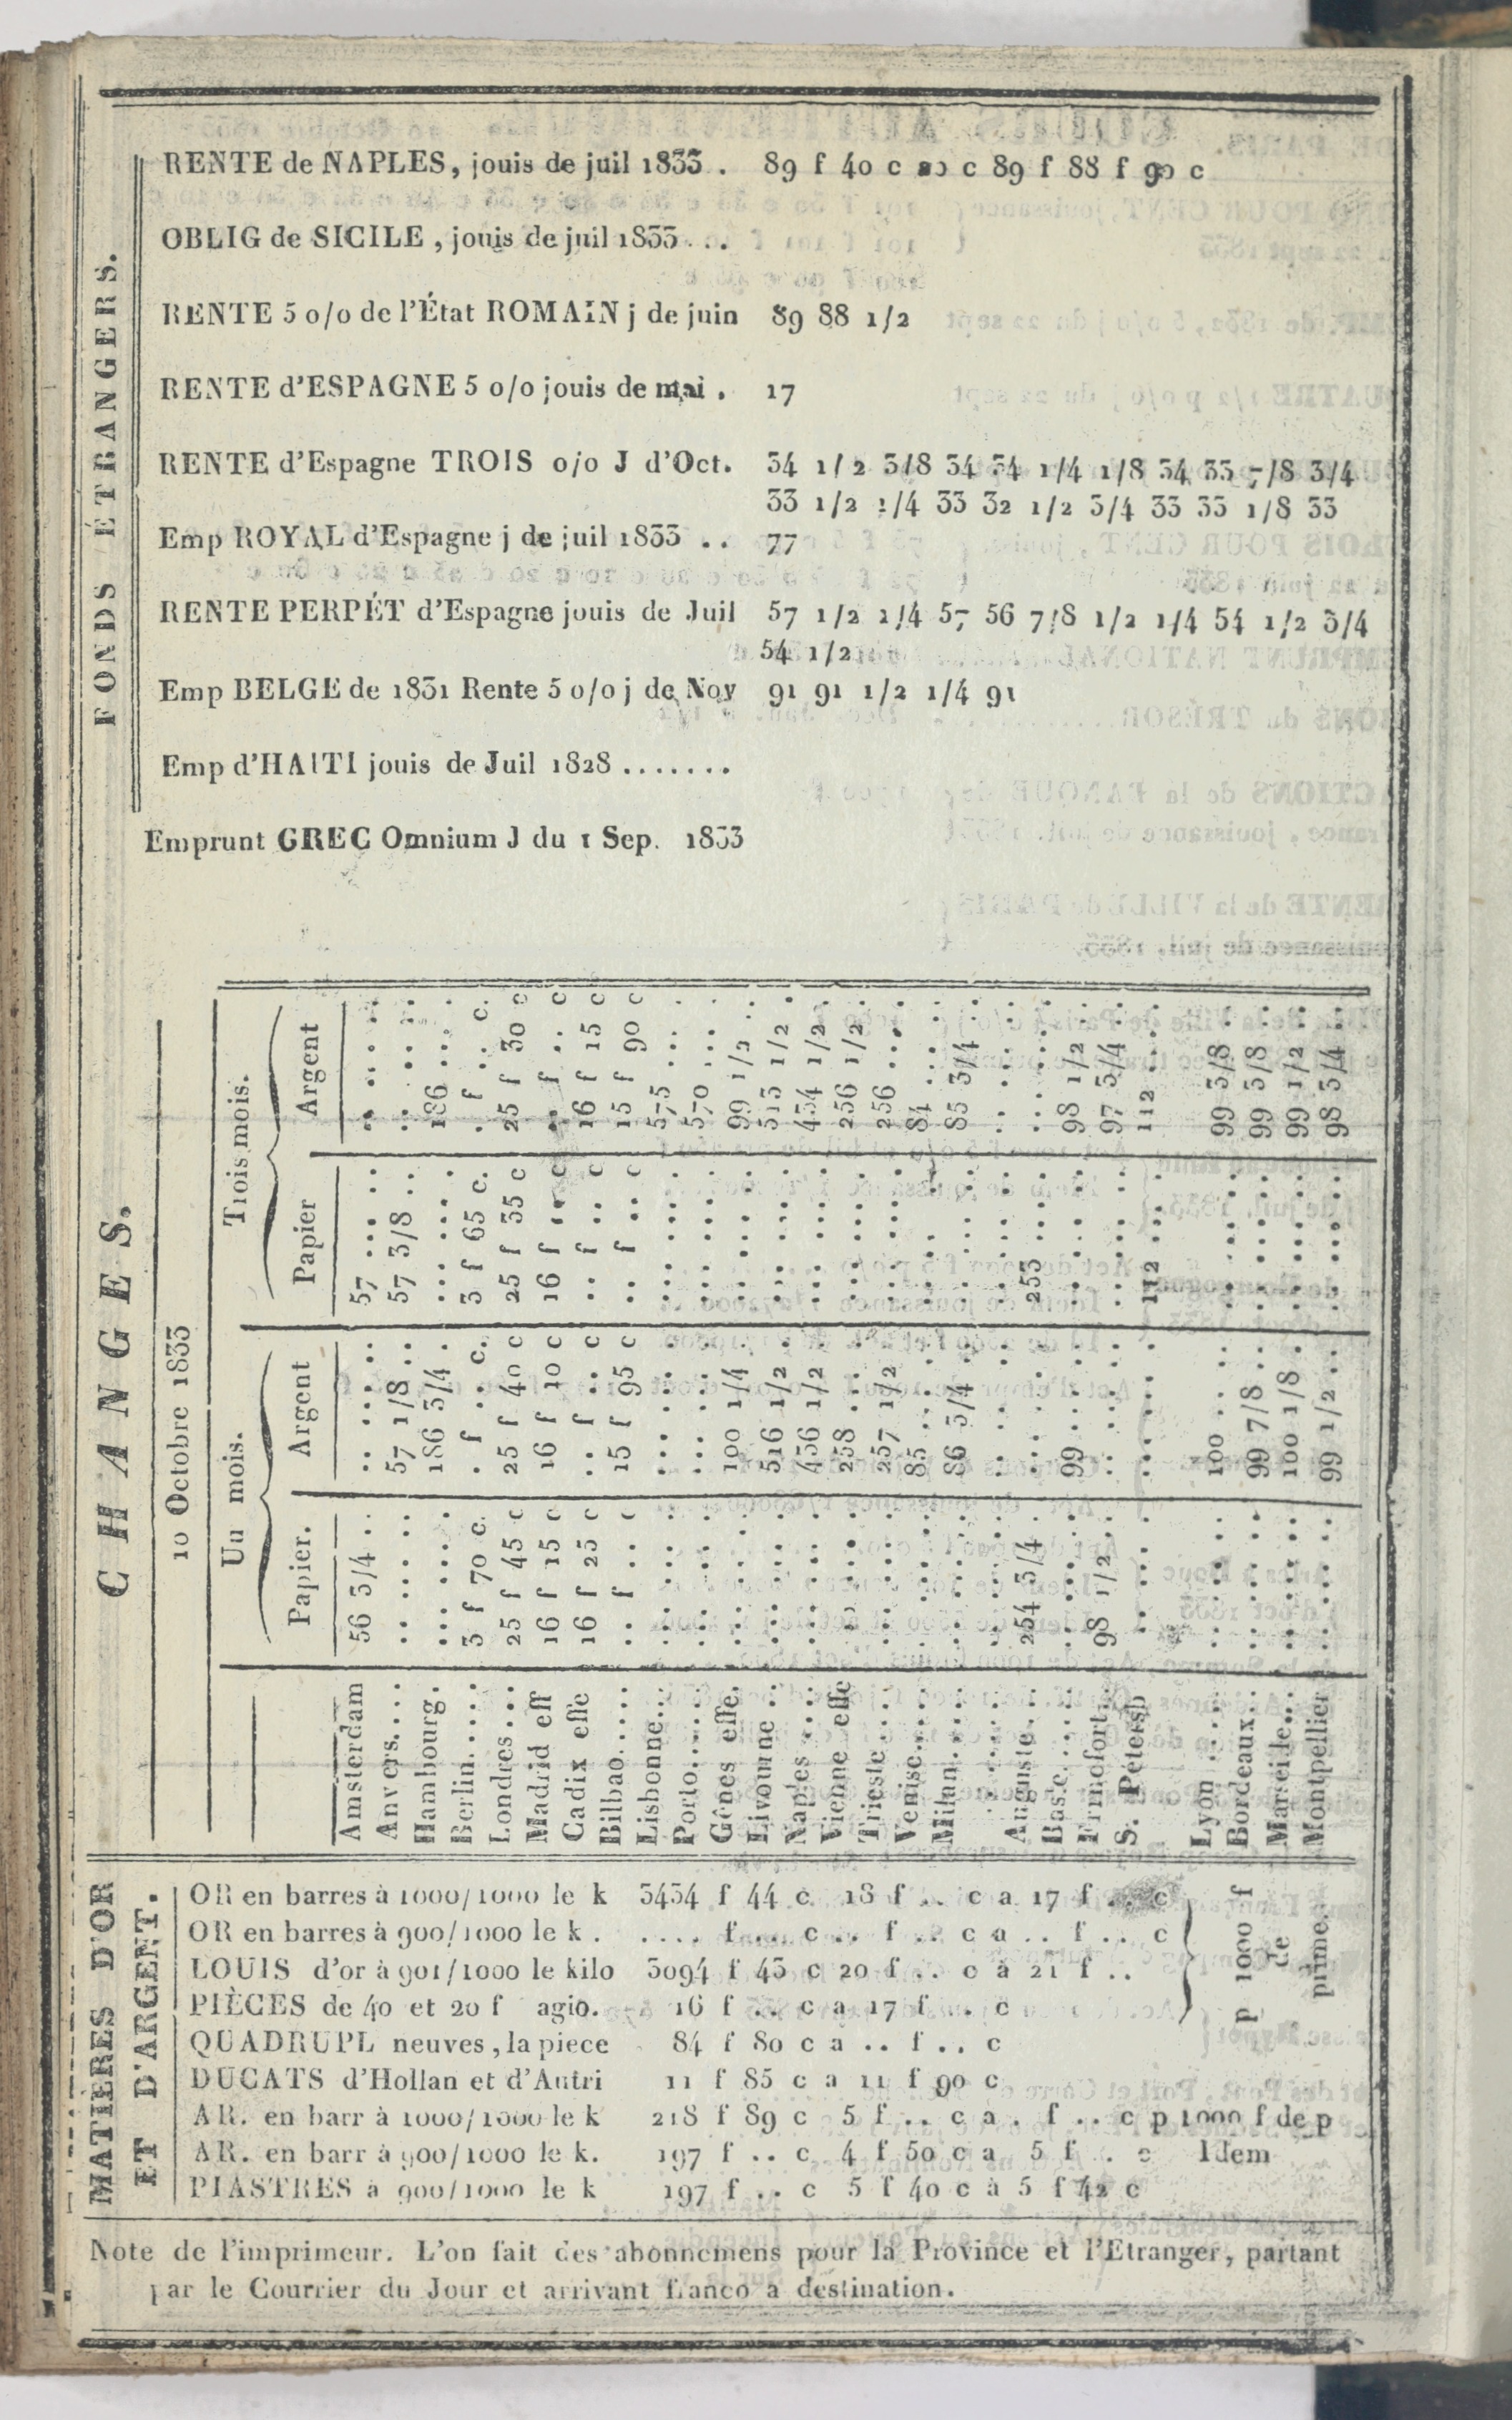 FONDS ÉTRANGERS.
RENTE de NAPLES, jouis de juil 1833 . 89 f 40 c 20 c 89 f 88 f 90 c
OBLIG de SICILE, jouis de juil 1833 . . .
RENTE 5 o/o de l'État ROMAIN j de juin 89 88 1/2
RENTE d'ESPAGNE 5 o/o jouis de mai . 17
RENTE d'Espagne TROIS o/o J d'Oct. 34 1/2 3/8 34 34 1/4 1/8 34 33 7/8 3/4
33 1/2 1/4 33 32 1/2 3/4 33 33 1/8 33
Emp ROYAL d'Espagne j de juil 1833 . . 77
RENTE PERPÉT d'Espagne jouis de Juil 57 1/2 1/4 57 56 7/8 1/2 1/4 54 1/2 3/4
54 1/2
Emp BELGE de 1831 Rente 5 o/o j de Nov 91 91 1/2 1/4 91
Emp d'HAITI jouis de Juil 1828 . . . . . . .
Emprunt GREC Omnium J du 1 Sep. 1833
CHANGES.
10 Octobre 1833
Un mois. Trois mois.
Papier. Argent Papier Argent
Amsterdam 56 3/4 . . . . . . . . 57 . . . . . . . .
Anvers. . . . . . . . . . 57 1/8 . . 57 3/8 . . . . . . . .
Hambourg. . . . . . . 186 3/4 . . . . . . . 186 . . . .
Berlin. . . . . 3 f 70 c. . f . . c. 3 f 65 c. . f . . c.
Londres . . . 25 f 45 c 25 f 40 c 25 f 35 c 25 f 30 c
Madrid eff 16 f 15 c 16 f 10 c 16 f . . c . . f . . c
Cadix effe 16 f 25 c . . f . . c . . f . . c 16 f 15 c
Bilbao. . . . . . . f . . c 15 f 95 c . . f . . c 15 f 90 c
Lisbonne. . . . . . . . . . . . . . . . . . 575 . . . .
Porto. . . . . . . . . . . . . . . . . . . . 570 . . . .
Gênes effe. . . . . . . . 100 1/4 . . . . . . 99 1/2 .
Livourne . . . . . . . . 516 1/2 . . . . . . . 513 1/2 .
Naples . . . . . . . . . 436 1/2 . . . . . . . 434 1/2 .
Vienne effe . . . . . . 258 . . . . . . . . . . 256 1/2 .
Trieste . . . . . . . . . 257 1/2 . . . . . . . 256 . . . .
Venise. . . . . . . . . . 85 . . . . . . . . . . . 84 . . . .
Milan. . . . . . . . . . . 86 3/4 . . . . . . . . 85 3/4 . .
. . . . . . . . . . . . . . . . . . . . . . . .
Auguste . . . 254 3/4 . . . . . . . . 253 . . . . . . . .
Basle. . . . . . . . . . . 99 . . . . . . . . . . 98 1/2 . .
Francfort . . 98 1/2 . . . . . . . . . . . . . 97 3/4 . .
S. Pétersb . . . . . . . . . . . . 112 . . . 112 . . . .
Lyon . . . . . . . . . . . 100 . . . . . . . . . . 99 3/8 .
Bordeaux. . . . . . . . 99 7/8 . . . . . . . . 99 3/8 .
Marseille. . . . . . . . 100 1/8 . . . . . . . . 99 1/2 .
Montpellier . . . . . . 99 1/2 . . . . . . . . 98 3/4 .
MATIÈRES D'OR
ET D'ARGENT.
OR en barres à 1000/1000 le k 3434 f 44 c 18 f . . c a 17 f . . c
OR en barres à 900/1000 le k . . . . . f . . c . . f . . c a . . f . . c
LOUIS d'or à 901/1000 le kilo 3094 f 43 c 20 f . . c à 21 f . .
PIÈCES de 40 et 20 f agio. 16 f . . c a 17 f . . c
p 1000 f
de
prime.
QUADRUPL neuves, la piece 84 f 80 c a . . f . . c
DUCATS d'Hollan et d'Autri 11 f 85 c a 11 f 90 c
AR. en barr à 1000/1000 le k 218 f 89 c 5 f . . c a . f . . c p 1000 f de p
AR. en barr à 900/1000 le k. 197 f . . c 4 f 50 c a 5 f . . c Idem
PIASTRES à 900/1000 le k 197 f . . c 5 f 40 c à 5 f 42 c
Note de l'imprimeur. L'on fait des abonnemens pour la Province et l'Etranger, partant
par le Courrier du Jour et arrivant franco a destination.